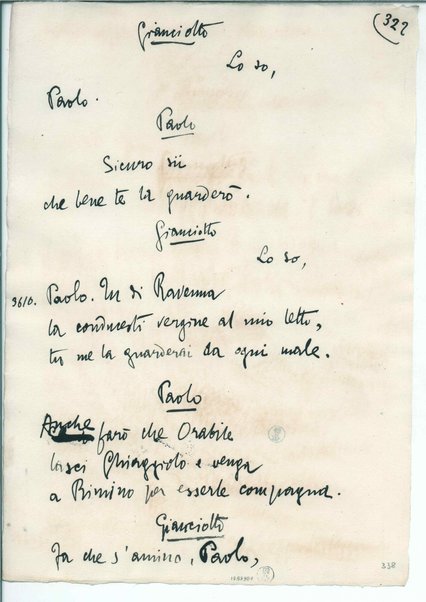 322
Gianciotto
Lo so,
Paolo.
Paolo
Sicuro sii
che bene te la guarderò.
Gianciotto
Lo so,
3610. Paolo. Tu di Ravenna
la conducesti vergine al mio letto,
tu me la guarderai da ogni male.
Paolo
Anche
farò che Orabile
lasci Ghiaggiolo e venga
a Rimino per esserle compagna.
Gianciotto
Fa che s'amino, Paolo,
338